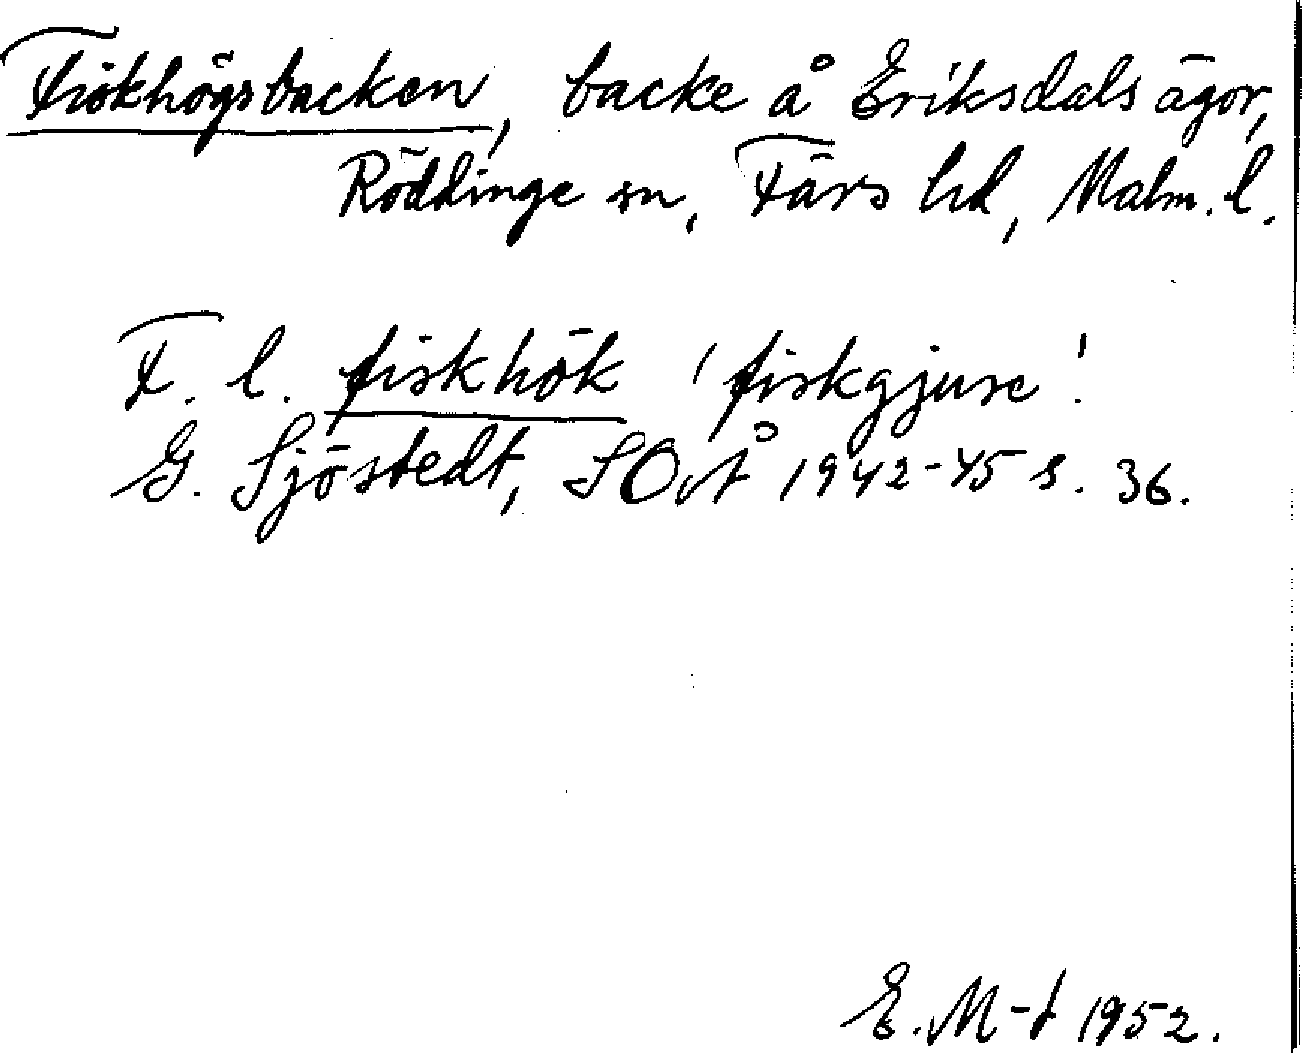 Fiskhögsbacken, backe å Eriksdals ägor,
Röddinge sn, Färs hd, Malm. l.
F. l. fiskhök 'fiskgjuse'.
G. Sjöstedt, SOÅ 1942-45 s. 36.
E. M-t 1952.